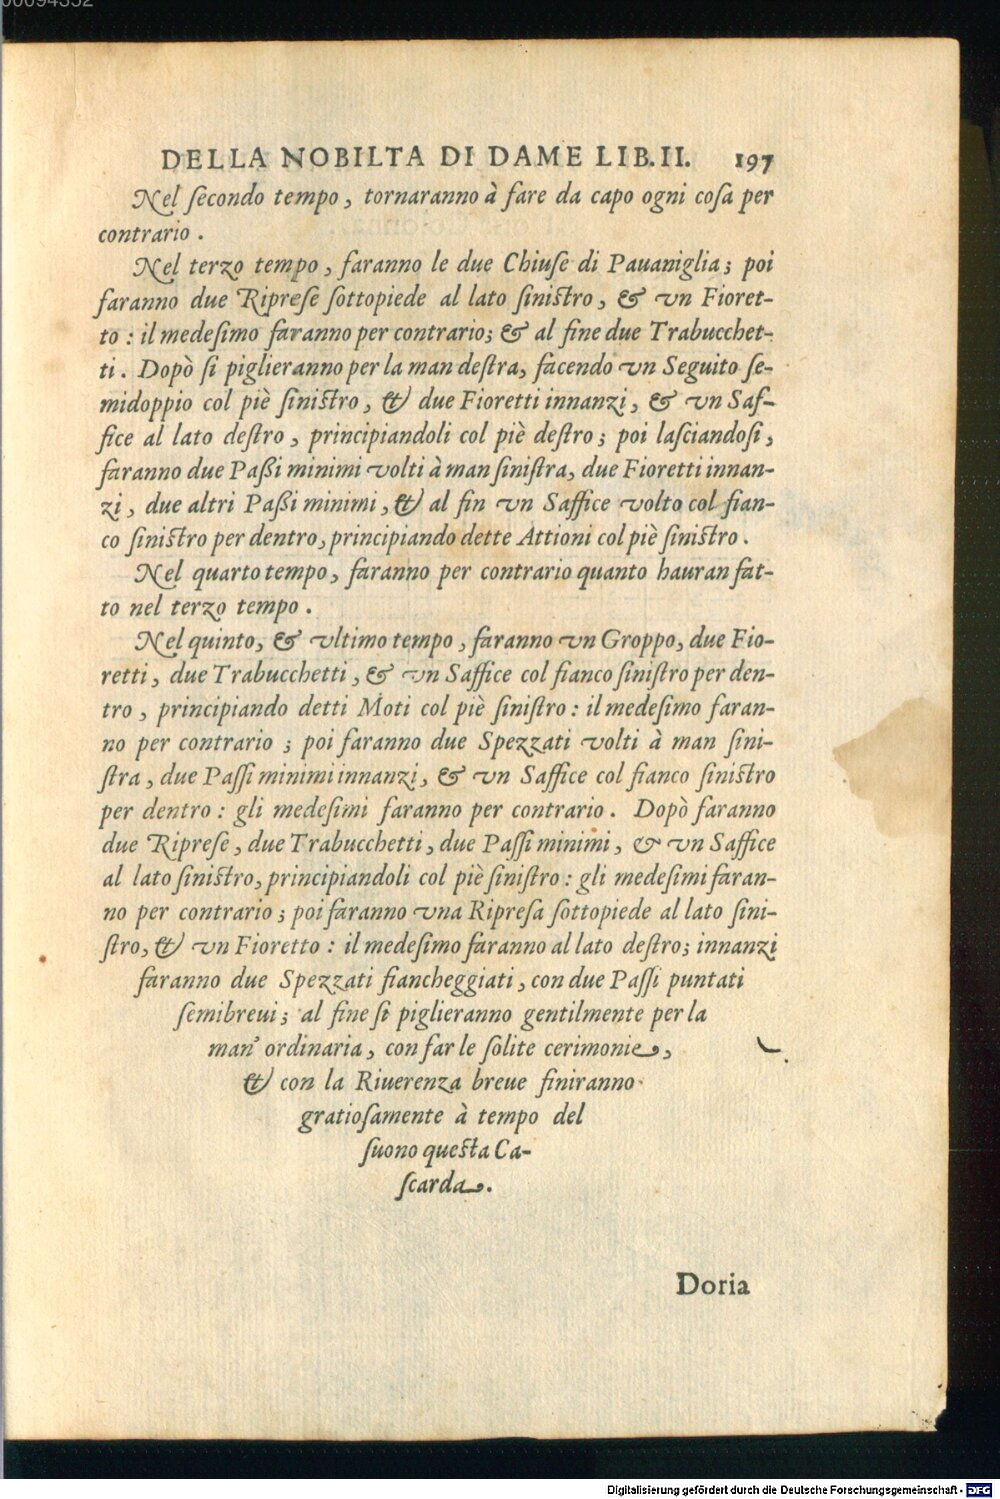 00094352
DELLA NOBILTA DI DAME LIB. II. 197
Nel ſecondo tempo, tornaranno à fare da capo ogni coſa per
contrario.
Nel terzo tempo, faranno le due Chiuſe di Pauaniglia; poi
faranno due Ripreſe ſottopiede al lato ſiniſtro, & vn Fioret-
to: il medeſimo faranno per contrario; & al fine due Trabucchet-
ti. Dopò ſi piglieranno per la man deſtra, facendo vn Seguito ſe-
midoppio col piè ſiniſtro, & due Fioretti innanzi, & vn Saf-
fice al lato deſtro, principiandoli col piè deſtro; poi laſciandoſi,
faranno due Paßi minimi volti à man ſiniſtra, due Fioretti innan-
zi, due altri Paßi minimi, & al fin vn Saffice volto col fian-
co ſiniſtro per dentro, principiando dette Attioni col piè ſiniſtro.
Nel quarto tempo, faranno per contrario quanto hauran fat-
to nel terzo tempo.
Nel quinto, & vltimo tempo, faranno vn Groppo, due Fio-
retti, due Trabucchetti, & vn Saffice col fianco ſiniſtro per den-
tro, principiando detti Moti col piè ſiniſtro: il medeſimo faran-
no per contrario; poi faranno due Spezzati volti à man ſini-
ſtra, due Paſſi minimi innanzi, & vn Saffice col fianco ſiniſtro
per dentro: gli medeſimi faranno per contrario. Dopò faranno
due Ripreſe, due Trabucchetti, due Paſſi minimi, & vn Saffice
al lato ſiniſtro, principiandoli col piè ſiniſtro: gli medeſimi faran-
no per contrario; poi faranno vna Ripreſa ſottopiede al lato ſini-
ſtro, & vn Fioretto: il medeſimo faranno al lato deſtro; innanzi
faranno due Spezzati fiancheggiati, con due Paſſi puntati
ſemibreui; al fine ſi piglieranno gentilmente per la
man' ordinaria, con far le ſolite cerimonie,
& con la Riuerenza breue finiranno
gratioſamente à tempo del
ſuono queſta Ca-
ſcarda.
Doria
Digitalisierung gefördert durch die Deutsche Forschungsgemeinschaft - DFG